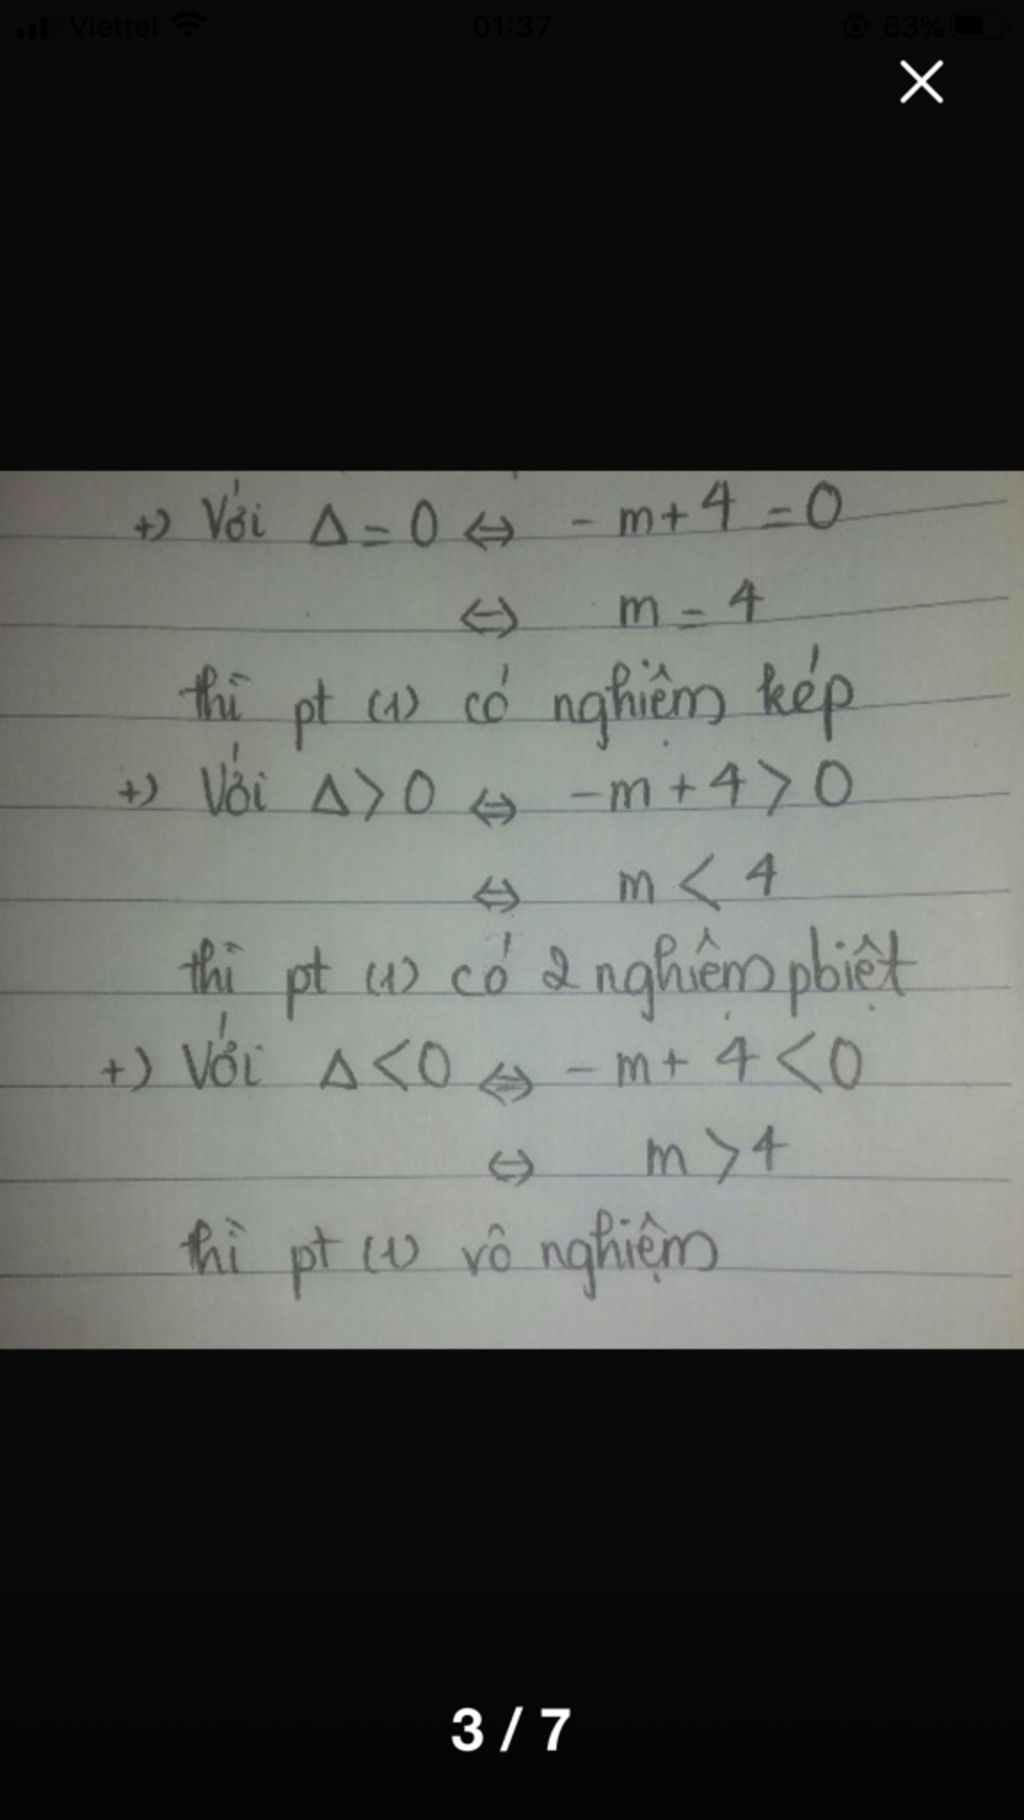 Viettel 01:37 63%
+) Với Δ = 0 ⇔ - m + 4 = 0
⇔ m = 4
thì pt (1) có nghiệm kép
+) Với Δ > 0 ⇔ - m + 4 > 0
⇔ m < 4
thì pt (1) có 2 nghiệm pbiệt
+) Với Δ < 0 ⇔ - m + 4 < 0
⇔ m > 4
thì pt (1) vô nghiệm
3 / 7